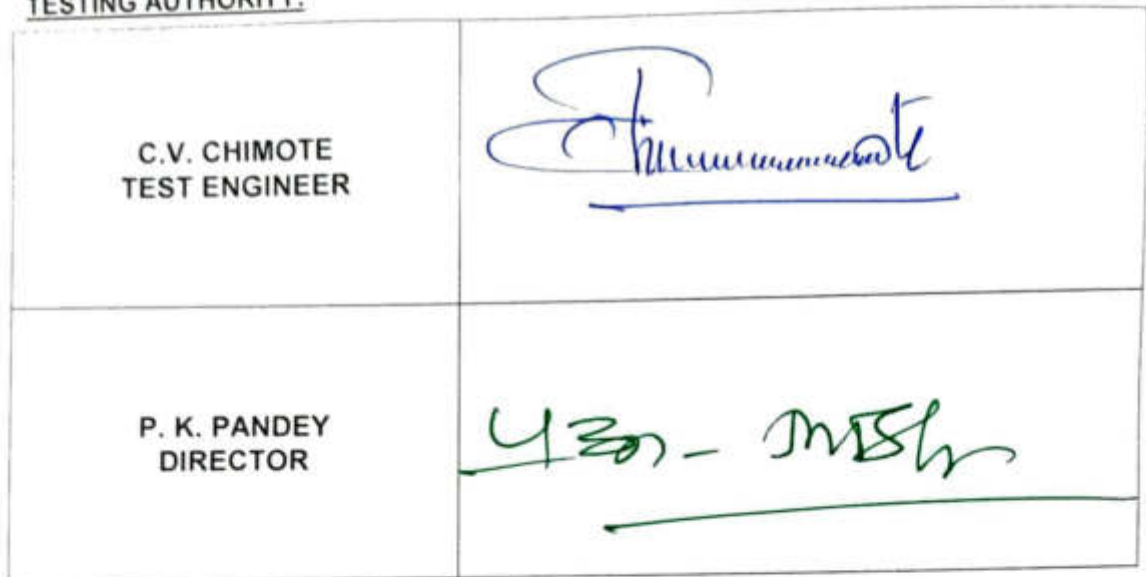 TESTING AUTHORITY:
C.V. CHIMOTE
TEST ENGINEER
P. K. PANDEY
DIRECTOR